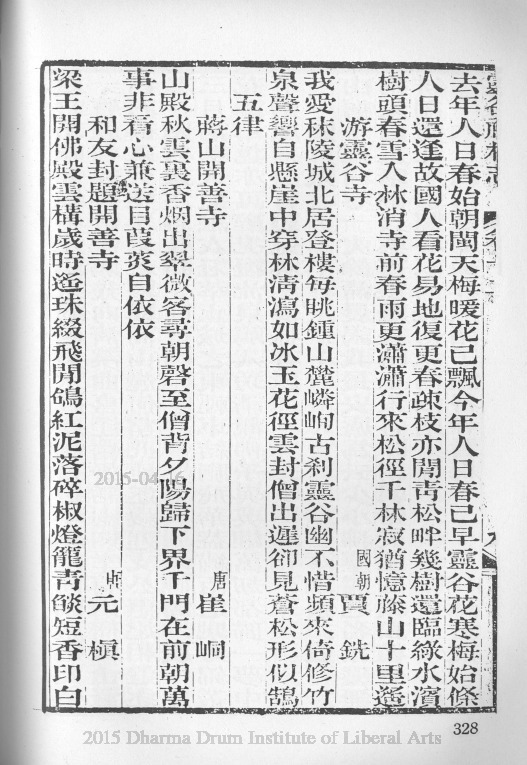 靈谷禪林志
去年人日春始朝閩天梅暖花已飄今年人日春已早靈谷花寒梅始條
人日還逢故國人看花易地復更春疎枝亦閒靑松畔幾樹還臨綠水濱
樹頭春雪入林消寺前春雨更瀟瀟行來松徑千林寂猶憶藤山十里遙
游靈谷寺 國朝 賈 銑
我愛秣陵城北居登樓每眺鍾山麓嶙峋古刹靈谷幽不惜頻來倚修竹
泉聲響自懸崖中穿林淸瀉如冰玉花徑雲封僧出遲卻見蒼松形似鵠
五律
蔣山開善寺 唐 崔 峒
山殿秋雲裏香烟出翠微客尋朝磬至僧背夕陽歸下界千門在前朝萬
事非看心兼送目葭菼自依依
和友封題開善寺 元 稹
梁王開佛殿雲構歲時遙珠綴飛閒鴿紅泥落碎椒燈籠靑燄短香印白
328
2015-04-16
2015 Dharma Drum Institute of Liberal Arts